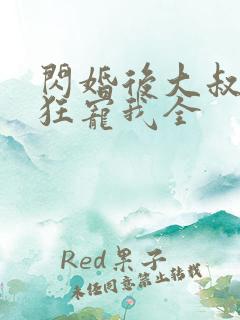 閃婚後大叔
狂寵我全
Red果子
未经同意禁止转载